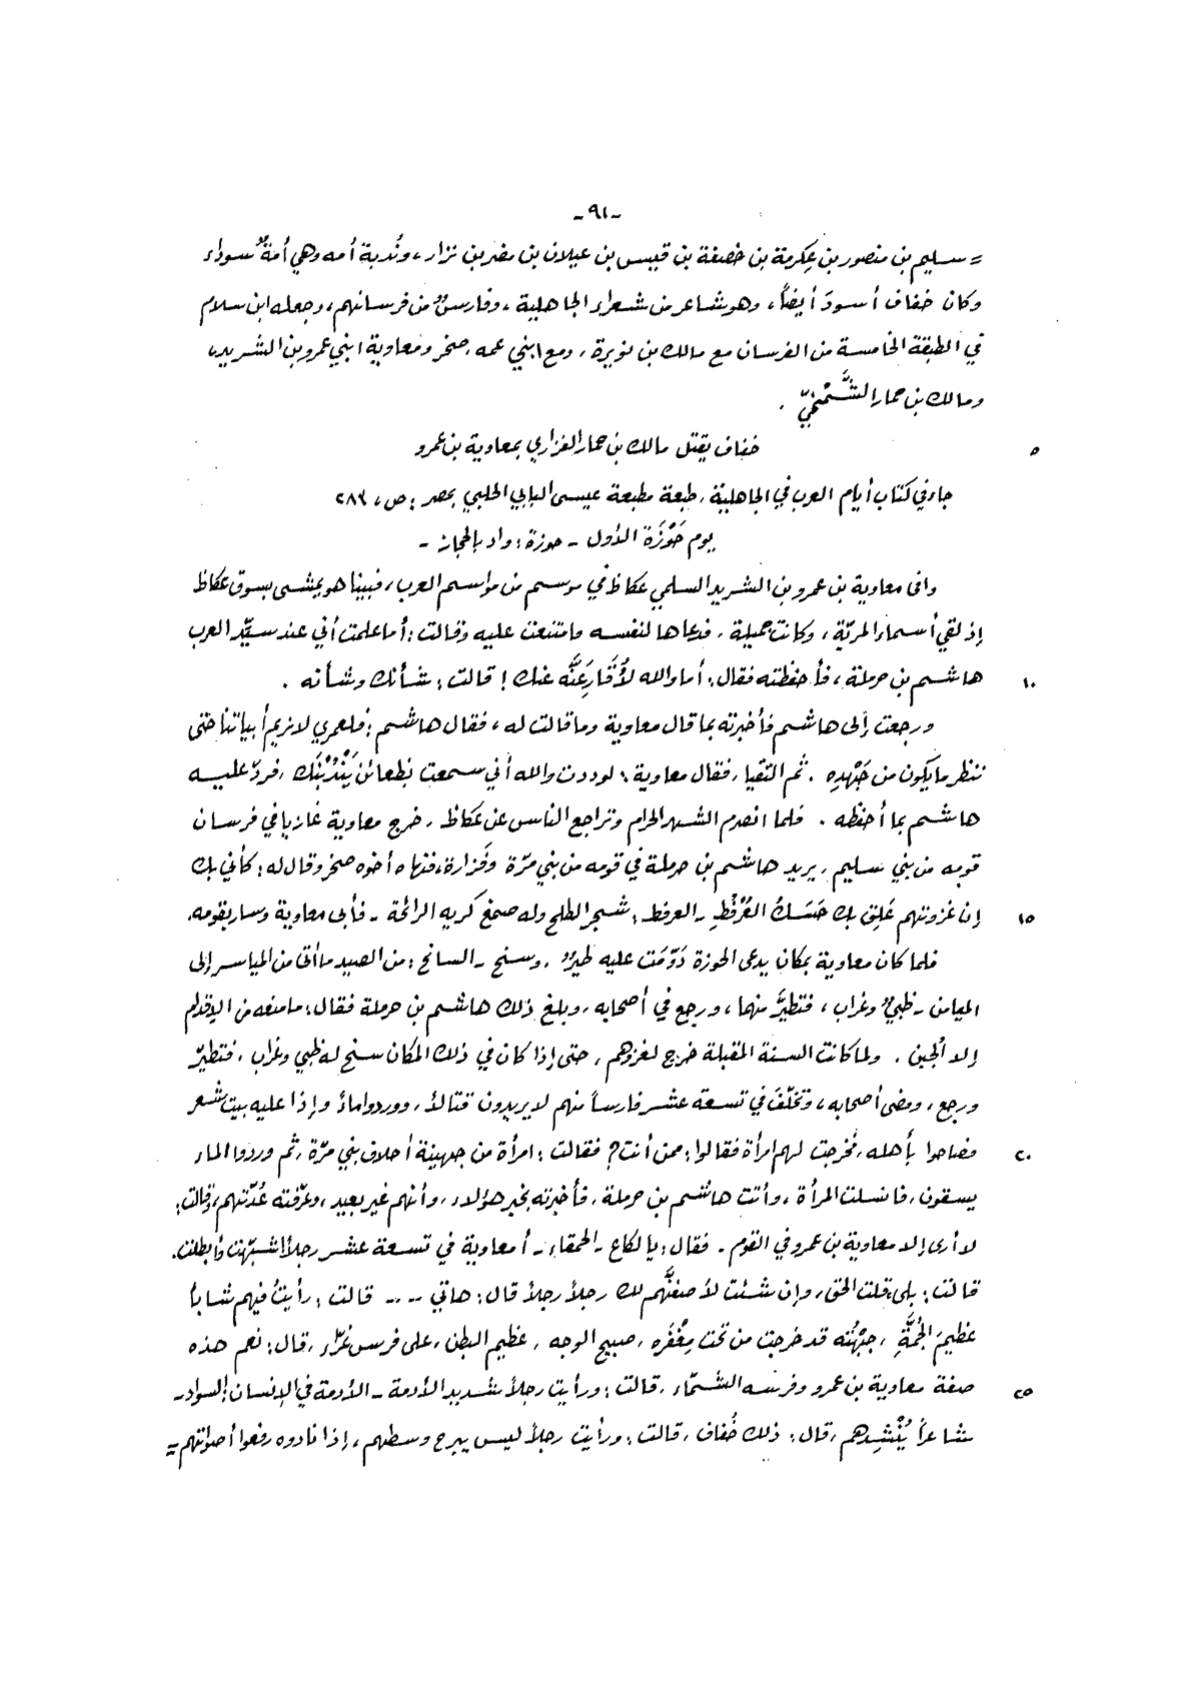 -٩١-
= سليم بن منصور بن عِكرمة بن خصفة بن قيس بن عيلان بن مضر بن نزار، ونُدبة أمه وهي أمةٌ سوداء
وكان خفاف أسودَ أيضاً، وهو شاعر من شعراء الجاهلية، وفارسٌ من فرسانهم، وجعله ابن سلام
في الطبقة الخامسة من الفرسان مع مالك بن نويرة، ومع ابني عمه، صخر ومعاوية ابني عمرو بن الشريد،
ومالك بن حمار الشَّمْخيّ .
٥ خفاف يقتل مالك بن حمار الفزاري بمعاوية بن عمرو
جاء في كتاب أيام العرب في الجاهلية، طبعة مطبعة عيسى البابي الحلبي بمصر: ص، ٢٨٦
يوم حَوْزَة الأول - حوزة: واد بالحجاز -
وافى معاوية بن عمرو بن الشريد السلمي عكاظ في موسم من مواسم العرب، فبينا هو يمشي بسوق عكاظ
إذ لقي أسماء المريّة، وكانت جميلة، فدعاها لنفسه فامتنعت عليه وقالت: أما علمت أني عند سيّد العرب
١٠ هاشم بن حرملة، فأحفظته فقال: أما والله لأُقَارِعَنَّه عنك! قالت: شأنك وشأنه .
ورجعت إلى هاشم فأخبرته بما قال معاوية وما قالت له، فقال هاشم: فلعمري لا نريم أبياتنا حتى
ننظر ما يكون من جَهْدِهِ . ثم التقيا، فقال معاوية: لوددت والله أني سمعت بظعائن يَنْدُبْنَك، فردّ عليه
هاشم بما أحفظه . فلما انصرم الشهر الحرام وتراجع الناس عن عكاظ، خرج معاوية غازيا في فرسان
قومه من بني سليم، يريد هاشم بن حرملة في قومه من بني مرّة وفزارة، فنهاه أخوه صخر وقال له: كأني بك
١٥ إن غزوتهم عَلِق بك حَسَكُ العُرْفُطِ - العرفط: شجر الطلح وله صمغ كريه الرائحة - فأبى معاوية وسار بقومه.
فلما كان معاوية بمكان يدعى الحوزة دَوَّمَت عليه طيرٌ، وسنح - السانح: من الصيد ما أتى من المياسر إلى
الميامن - ظبيٌ وغراب، فتطيَّر منهما، ورجع في أصحابه، وبلغ ذلك هاشم بن حرملة فقال: ما منعه من الإقدام
إلا الجبن . ولما كانت السنة المقبلة خرج لغزوهم، حتى إذا كان في ذلك المكان سنح له ظبي وغراب، فتطيرّ
ورجع، ومضى أصحابه، وتخلّفَ في تسعة عشر فارساً منهم لا يريدون قتالاً، ووردوا ماءً وإذا عليه بيت شعر
٢٠ فصاحوا بأهله، فخرجت لهم امرأة فقالوا: ممن أنت؟ فقالت: امرأة من جهينة أحلاف بني مرّة، ثم وردوا الماء
يسقون، فانسلت المرأة، وأتت هاشم بن حرملة، فأخبرته بخبر هؤلاء، وأنهم غير بعيد، وعرّفته عُدّتهم، وقالت:
لا أرى إلا معاوية بن عمرو في القوم - فقال: يا لكاع - الحمقاء - أمعاوية في تسعة عشر رجلاً اشبّهت وأبطلت.
قالت: بلى قلت الحق، وإن شئت لأصفنَّهم لك رجلاً رجلاً قال: هاتي -- -- قالت: رأيتُ فيهم شاباً
عظيمَ الجُمَّةِ، جبْهته قد خرجت من تحت مِغْفَره، صبيح الوجه، عظيم البطن، على فرس غرّاء، قال: نعم هذه
٢٥ صفة معاوية بن عمرو وفرسه الشمّاء، قالت: ورأيت رجلاً شديد الأدمة - الأدمة في الإنسان: السواد -
شاعراً يُنْشِدهم، قال: ذلك خُفاف، قالت: ورأيت رجلاً ليس يبرح وسطهم، إذا نادوه رفعوا أصواتهم =